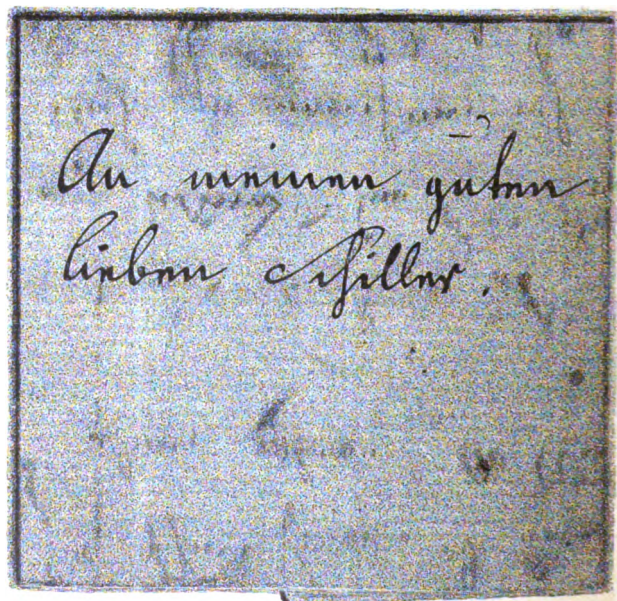 An meinen guten
lieben Schiller.